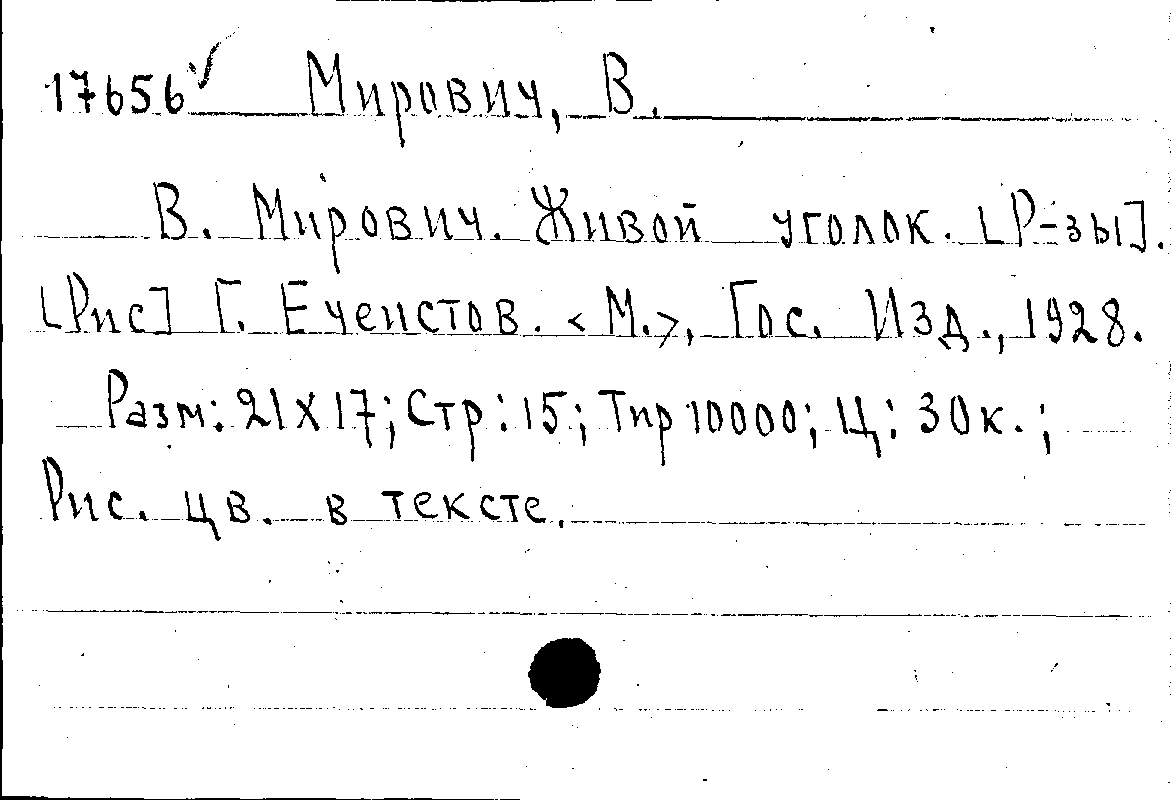 17656 ✓ Мирович, В.
В. Мирович. Живой уголок. [Р-зы].
[Рис] Г. Ечеистов. <М.>, Гос. Изд., 1928.
Разм: 21х17; Стр: 15; Тир 10000; Ц: 30к.;
Рис. цв. в тексте.